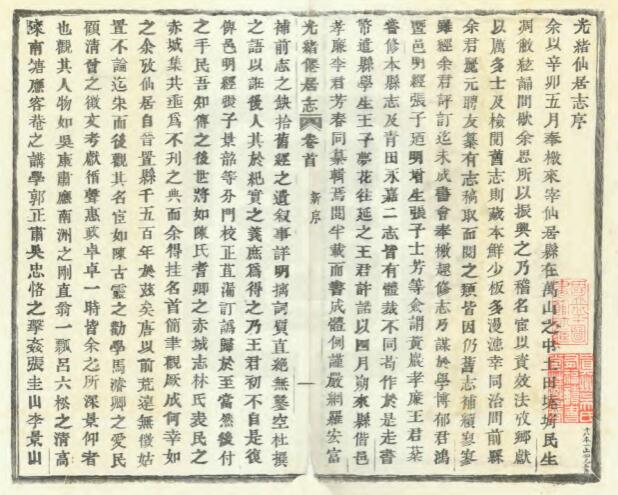 光緒仙居志序
余以辛卯五月奉檄來宰仙居縣在萬山之中土田墝埆民生
凋敝絃誦間歇余思所以振興之乃稽名宦以資效法攷鄉獻
以厲多士及檢閱舊志則藏本鮮少板多漫漶幸同治間前縣
余君麗元聘友纂有志稿取而閱之類皆因仍舊志補綴寥寥
雖經余君評訂迄未成書會奉檄趣修志乃謀於學博郁君鴻
暨邑明經張子廼明增生張子士芳等僉謂黃巖孝廉王君棻
嘗修本縣志及青田永嘉二志皆有體裁不同苟作於是走書
幣遣縣學生王子夢花往延之王君許諾以四月朔來縣偕邑
孝廉李君芳春同纂輯焉閱半載而書成體例謹嚴網羅宏富
光緒僊居志
卷首
新序
一
補前志之缺拾舊經之遺敘事詳明摛詞質直絶無鑿空杜撰
之語以誑後人其於紀實之義庶爲得之乃王君初不自是復
俾邑明經張子景韶等分門校正苴漏訂譌歸於至當然後付
之手民吾知傳之後世將如陳氏耆卿之赤城志林氏表民之
赤城集共垂爲不刊之典而余得挂名首簡聿觀厥成何幸如
之余攷仙居自晉置縣千五百年於茲矣唐以前荒遠無徵姑
置不論迄宋而後觀其名宦如陳古靈之勸學馬濂卿之愛民
顧清菅之徵文考獻循聲惠政卓卓一時皆余之所深景仰者
也觀其人物如吳康肅應南洲之剛直翁一瓢呂六松之清高
陳南塘應客菴之講學郭正肅吳忠恪之擊姦張圭山李景山